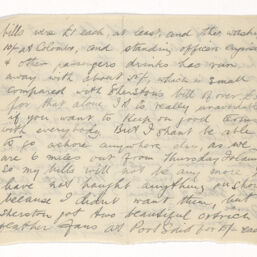 bills were £1 each, at least, and other washing
10/- at Colombo, and standing officers
& other passengers drinks has run
away with about 50/-, which is small
compared with Sherstons bill of over £
for that alone It is really unavoidable
if you want to keep on good terms
with everybody. But I shant be able
to go ashore anywhere else, as we
are 6 miles out from Thursday Island
so my bills will not be any more I
have not bought anything on shore
because I didnt want them, but
Sherston got two beautiful ostrich
feather fans at Port Said for 10/- each